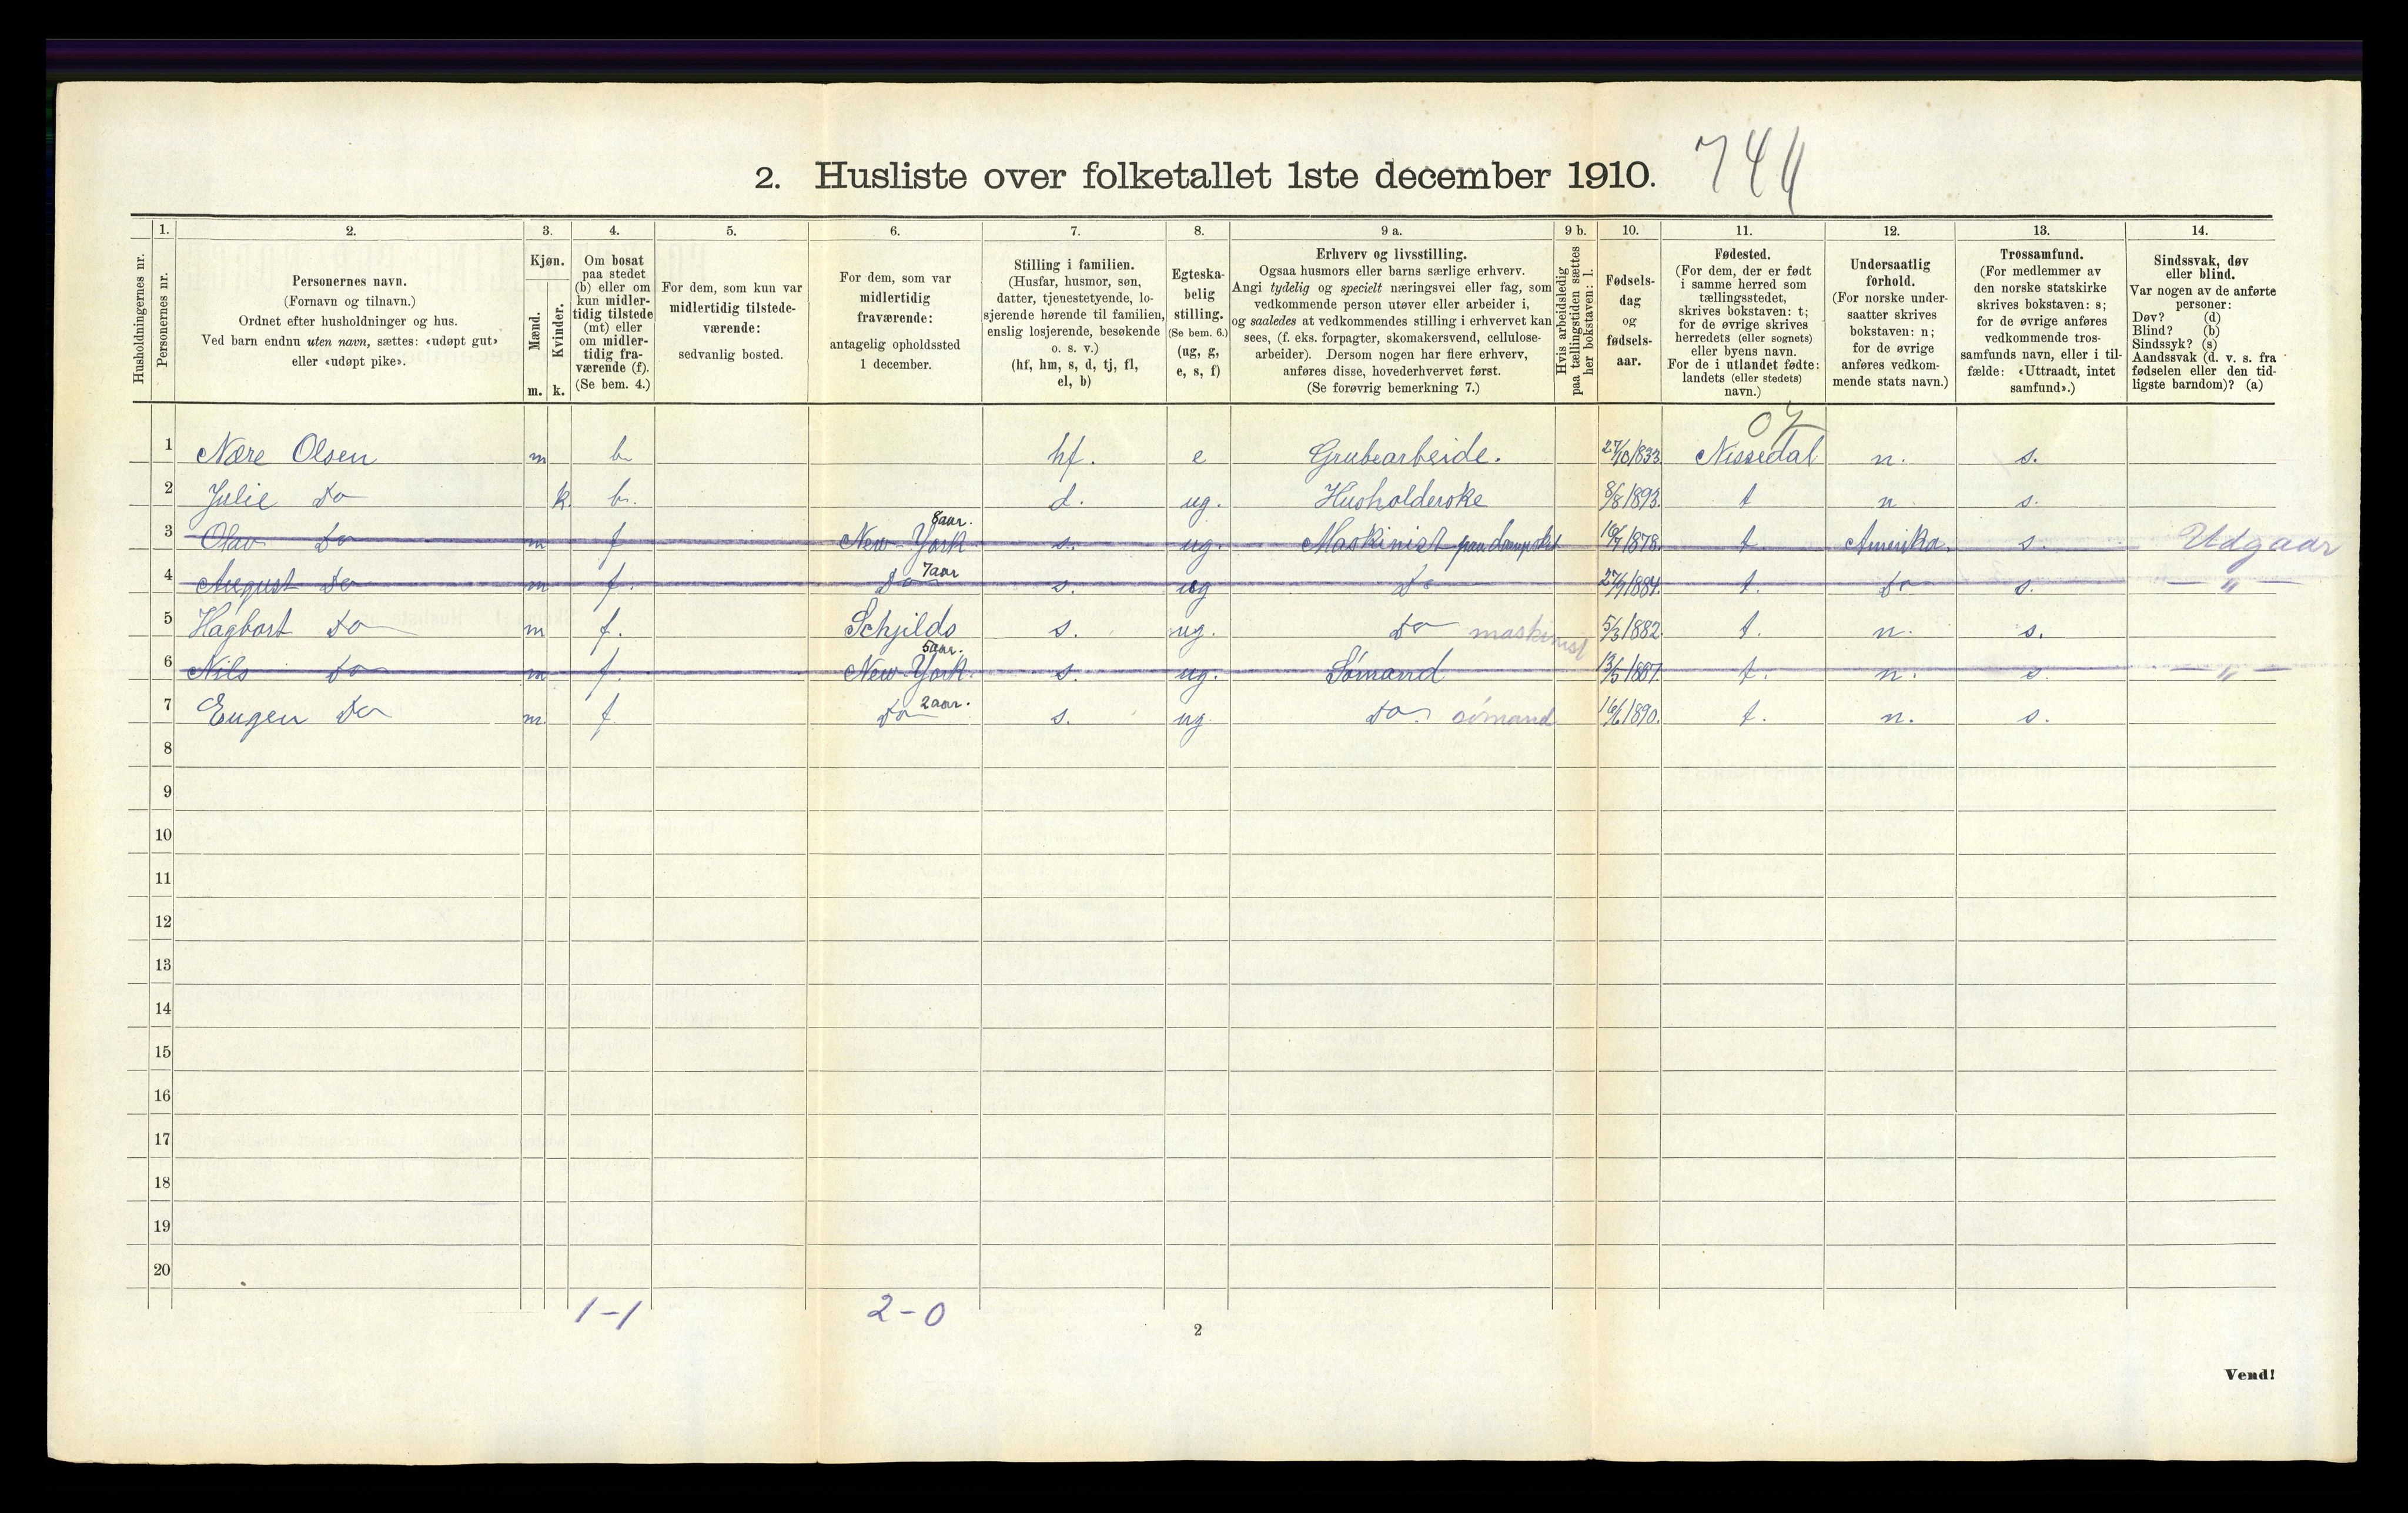 2. Husliste over folketallet 1ste december 1910. 744
Husholdningernes nr.
1.
Personernes nr.
2.
Personernes navn.
(Fornavn og tilnavn.)
Ordnet efter husholdninger og hus.
Ved barn endnu uten navn, sættes: «udøpt gut»
eller «udøpt pike».
3.
Kjøn.
Mænd.
Kvinder.
m. k.
4.
Om bosat
paa stedet
(b) eller om
kun midler-
tidig tilstede
(mt) eller
om midler-
tidig fra-
værende (f).
(Se bem. 4.)
5.
For dem, som kun var
midlertidig tilstede-
værende:
sedvanlig bosted.
6.
For dem, som var
midlertidig
fraværende:
antagelig opholdssted
1 december.
7.
Stilling i familien.
(Husfar, husmor, søn,
datter, tjenestetyende, lo-
sjerende hørende til familien,
enslig losjerende, besøkende
o. s. v.)
(hf, hm, s, d, tj, fl,
el, b)
8.
Egteska-
belig
stilling.
(Se bem. 6.)
(ug, g,
e, s, f)
9 a.
Erhverv og livsstilling.
Ogsaa husmors eller barns særlige erhverv.
Angi tydelig og specielt næringsvei eller fag, som
vedkommende person utøver eller arbeider i,
og saaledes at vedkommendes stilling i erhvervet kan
sees, (f. eks. forpagter, skomakersvend, cellulose-
arbeider). Dersom nogen har flere erhverv,
anføres disse, hovederhvervet først.
(Se forøvrig bemerkning 7.)
9 b.
Hvis arbeidsledig
paa tællingstiden sættes
her bokstaven: l.
10.
Fødsels-
dag
og
fødsels-
aar.
11.
Fødested.
(For dem, der er født
i samme herred som
tællingsstedet,
skrives bokstaven: t;
for de øvrige skrives
herredets (eller sognets)
eller byens navn.
For de i utlandet fødte:
landets (eller stedets)
navn.)
12.
Undersaatlig
forhold.
(For norske under-
saatter skrives
bokstaven: n;
for de øvrige
anføres vedkom-
mende stats navn.)
13.
Trossamfund.
(For medlemmer av
den norske statskirke
skrives bokstaven: s;
for de øvrige anføres
vedkommende tros-
samfunds navn, eller i til-
fælde: «Uttraadt, intet
samfund».)
14.
Sindssvak, døv
eller blind.
Var nogen av de anførte
personer:
Døv? (d)
Blind? (b)
Sindssyk? (s)
Aandssvak (d. v. s. fra
fødselen eller den tid-
ligste barndom)? (a)
1 Nære Olsen m b hf. e Grubearbeide. 27/10 1833. Nissedal n. s.
2 Julie Do k. b. d. ug. Husholderske 8/8 1893. t n s.
3 Olav Do m f New-York 8 aar. s. ug. Maskinist paa dampskib 1878. t. Amerika. s. Udgaar
4 August Do m f. Do 7 aar s. ug Do 1884. t. Do s. — " —
5 Hagbart Do m f. Schjilds s. ug. Do maskinist 5/3 1882. t. n. s.
6 Nils Do m f. New-York. 5 aar. s. ug. Sømand 13/5 1887. t. n. s — " —
7 Eugen Do m f Do 2 aar. s. ug. Do. sømand 16/6 1890. t. n. s.
8
9
10
11
12
13
14
15
16
17
18
19
20
1-1 2-0
2
Vend!